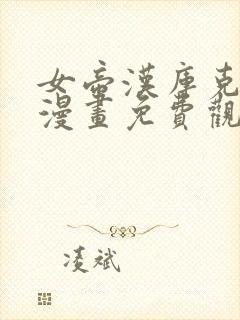 女帝漢庫克
漫畫免費觀
凌斌